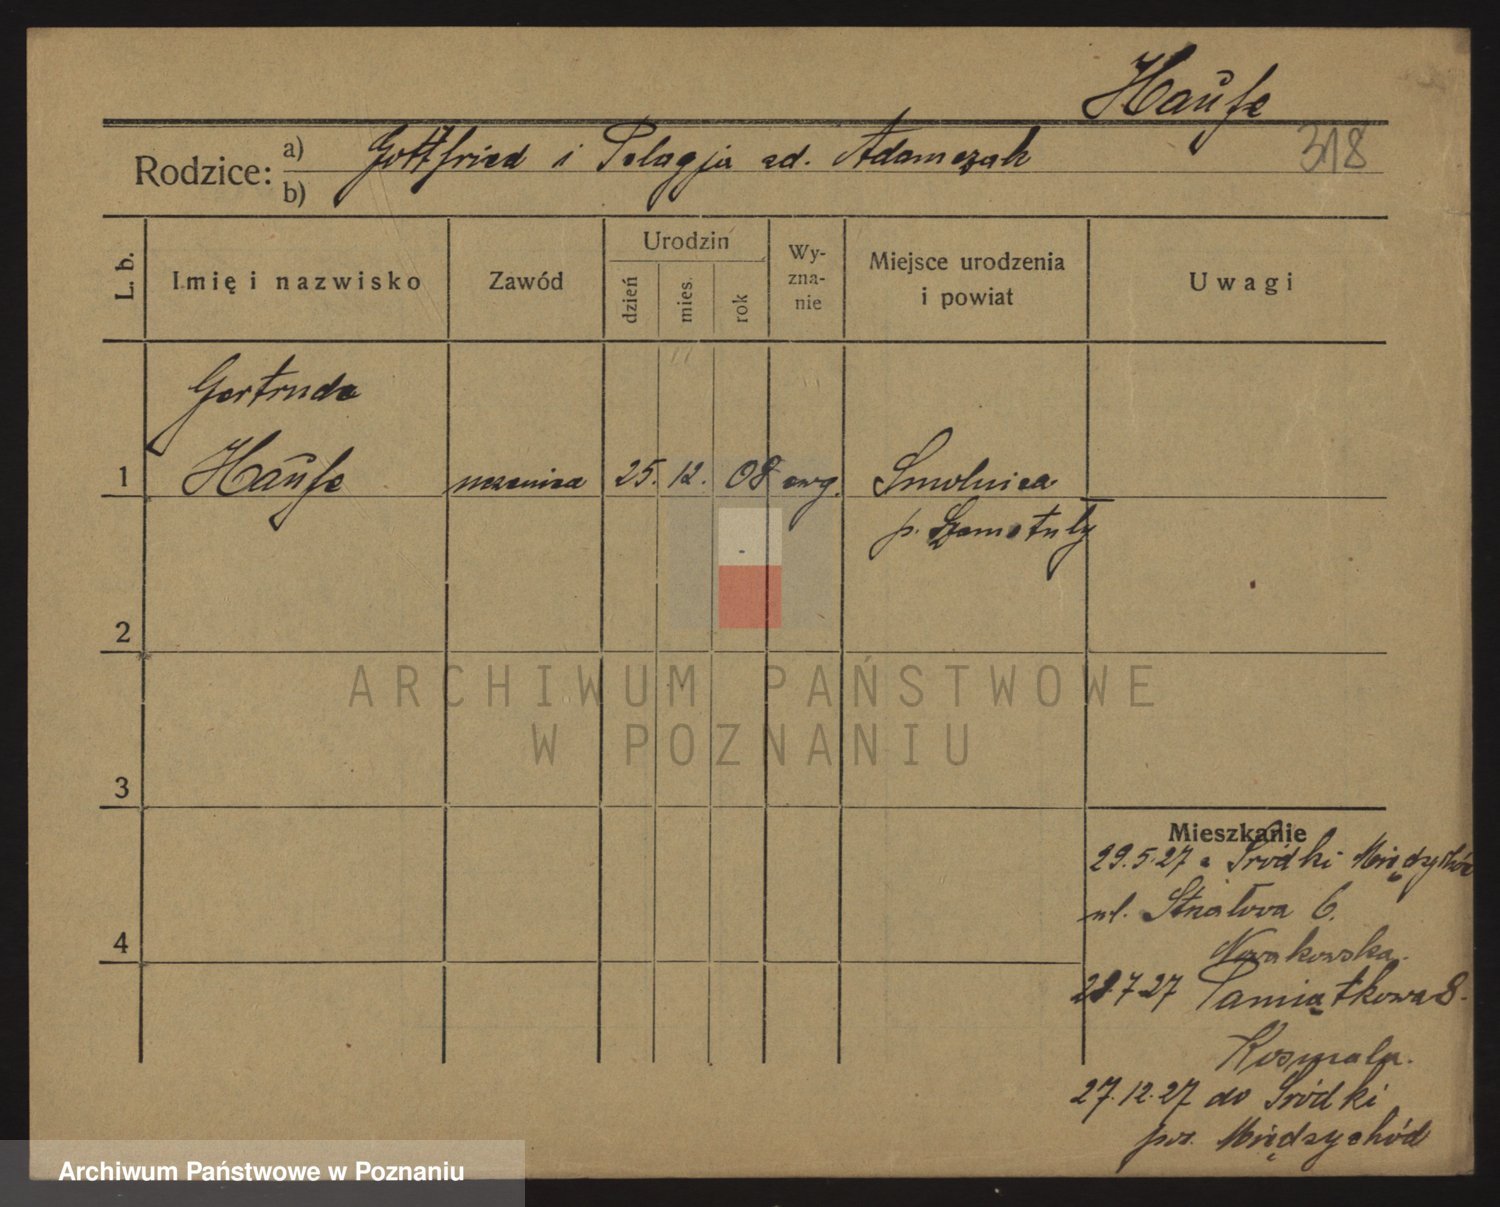 Haufe
318
Rodzice: a) Gottfried i Pelagja zd. Adamczak
b)
L. b.
Imię i nazwisko
Zawód
Urodzin
dzień
mies.
rok
Wy-
zna-
nie
Miejsce urodzenia
i powiat
Uwagi
Gertruda
1 Haufe uczenica 25. 12. 08 ewg. Smolnica
p. Szamotuły
2
3
4
ARCHIWUM PAŃSTWOWE
W POZNANIU
Mieszkanie
29.5.27 z Śródki Międzychód
ul. Strzałowa 6.
Nowakowska.
28.7.27 Pamiątkowa 8.
Kosmala.
27.12.27 do Śródki
pow. Międzychód
Archiwum Państwowe w Poznaniu